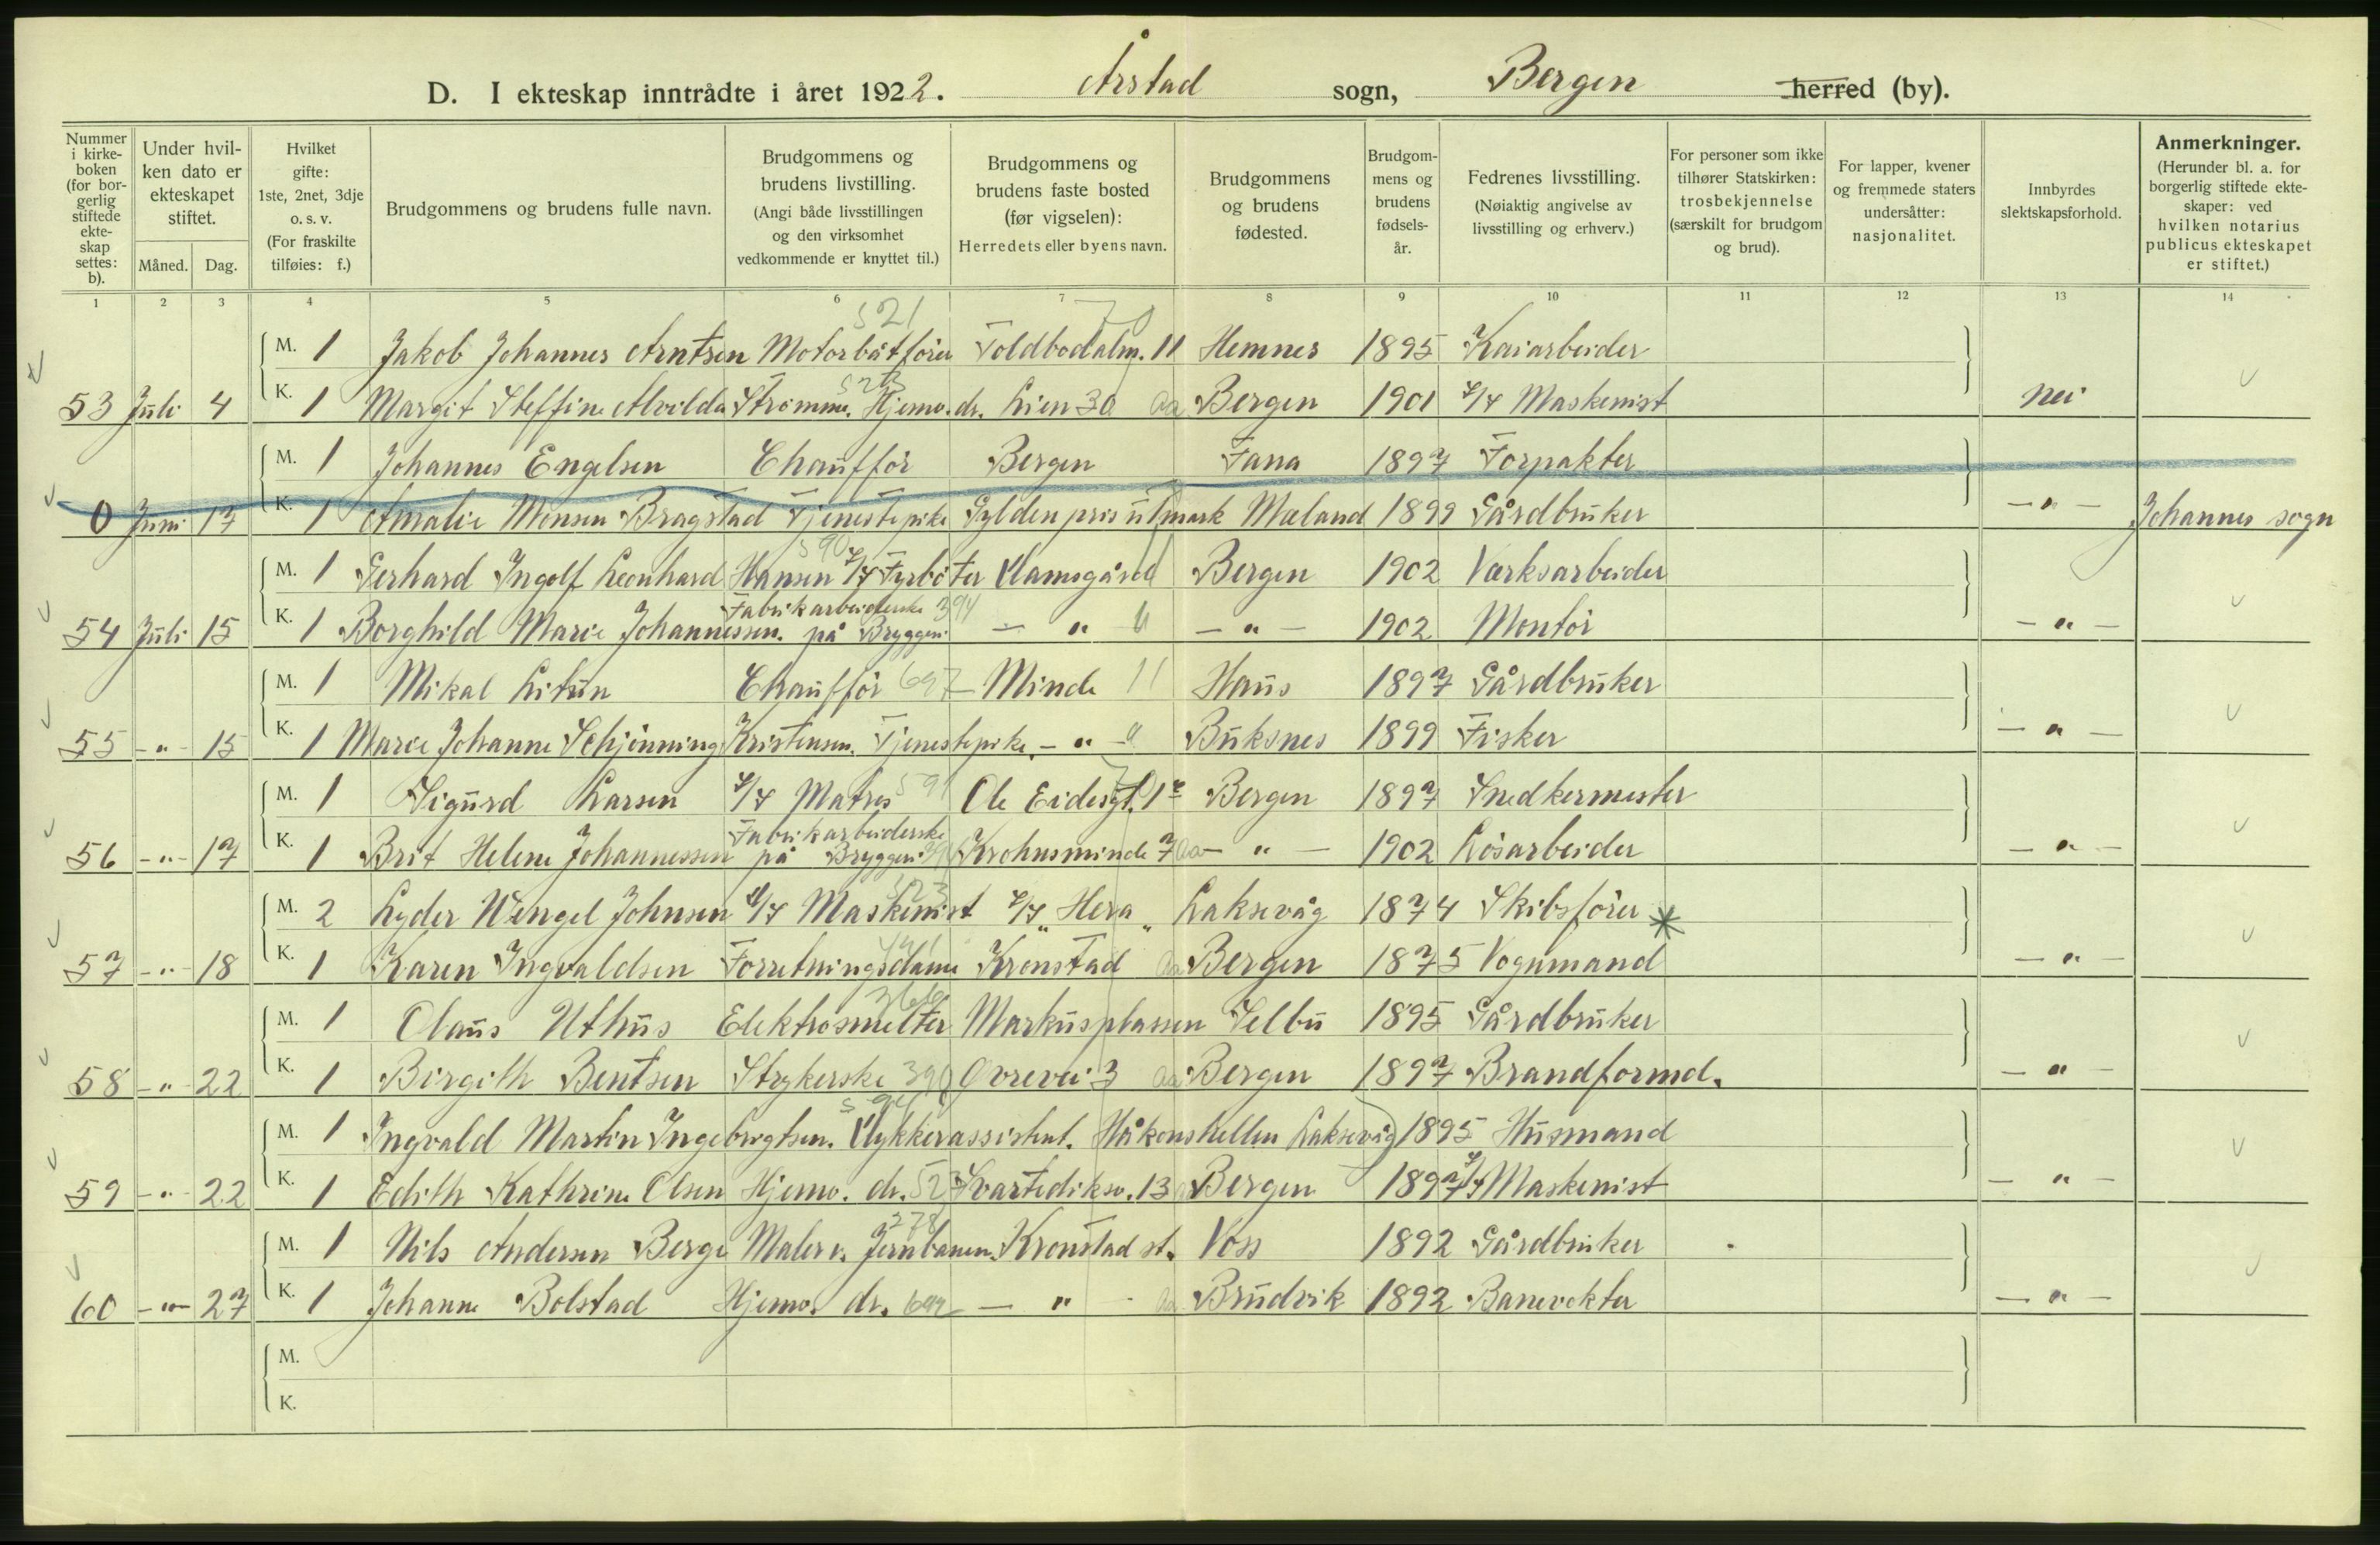 D. I ekteskap inntrådte i året 1922. Årstad sogn, Bergen herred (by).
Nummer i kirkeboken (for borgerlig stiftede ekteskap settes: b).
Under hvilken dato er ekteskapet stiftet.
Måned. Dag.
Hvilket gifte: 1ste, 2net, 3dje o. s. v. (For fraskilte tilføies: f.)
Brudgommens og brudens fulle navn.
Brudgommens og brudens livstilling. (Angi både livsstillingen og den virksomhet vedkommende er knyttet til.)
Brudgommens og brudens faste bosted (før vigselen): Herredets eller byens navn.
Brudgommens og brudens fødested.
Brudgommens og brudens fødselsår.
Fedrenes livsstilling. (Nøiaktig angivelse av livsstilling og erhverv.)
For personer som ikke tilhører Statskirken: trosbekjennelse (særskilt for brudgom og brud).
For lapper, kvener og fremmede staters undersåtter: nasjonalitet.
Innbyrdes slektskapsforhold.
Anmerkninger. (Herunder bl. a. for borgerlig stiftede ekteskaper: ved hvilken notarius publicus ekteskapet er stiftet.)
1 2 3 4 5 6 7 8 9 10 11 12 13 14
521 70
M. 1 Jakob Johannes Arntsen Motorbåtfører Toldbodalm. 11 Hemnes 1895 Kaiarbeider
53 Juli 4 K. 1 Margit Steffine Alvilda Strømme. Hjemv. dr. Lien 30 Aa Bergen 1901 s/s Maskinist nei
M. 1 Johannes Engelsen Chauffør Bergen Fana 1897 Forpakter
0 Juni 17 K. 1 Amalie Monsen Bragstad Tjenestepike Gyldenpris utmark Mæland 1899 Gårdbruker — " — Johannes sogn
590
M. 1 Gerhard Ingolf Leonhard Hansen s/s Fyrbøter Slamsgård Bergen 1902 Verksarbeider
Fabrikarbeiderske 394
54 Juli 15 K. 1 Borghild Marie Johannessen. på Bryggen. — " — — " — 1902 Montør — " —
M. 1 Mikal Litun Chauffør 697 Minde 11 Haus 1897 Gårdbruker
55 — " — 15 K. 1 Marie Johanne Schjønning Kristensen. Tjenestepike. — " — Buksnes 1899 Fisker — " —
M. 1 Sigurd Larsen s/s Matros 591 Ole Eidesgt. Bergen 1897 Snedkermester
Fabrikarbeiderske
56 — " — 17 K. 1 Brit Helene Johannessen på Bryggeri Krohnsminde 7 Aa — " — 1902 Løsarbeider — " —
523
M. 2 Lyder Wengel Johnsen s/s Maskinist s/s "Hera" Laksevåg 1874 Skibsfører *
57 — " — 18 K. 1 Karen Ingvaldsen Forretningsdame Kronstad Aa Bergen 1875 Vognmand — " —
366
M. 1 Olaus Uthus Elektrosmelter Markusplassen Selbu 1895 Gårdbruker
58 — " — 22 K. 1 Birgith Bentsen Strykerske 390 Øvrevei 3 Aa Bergen 1897 Brandformd. — " —
M. 1 Ingvald Martin Ingebrigtsen. Dykkerassistent. Håkonshellen Laksevåg 1895 Husmand
59 — " — 22 K. 1 Edith Kathrine Olsen Hjemv. dr. 523 Svartediksv. 13 Bergen 1897 s/s Maskinist — " —
278
M. 1 Nils Andersen Berge Maler v. Jernbanen. Kronstad st. Voss 1892 Gårdbruker
60 — " — 27 K. 1 Johanne Bolstad Hjemv. dr. 692 — " — Aa Brudvik 1892 Banevokter — " —
M.
K.